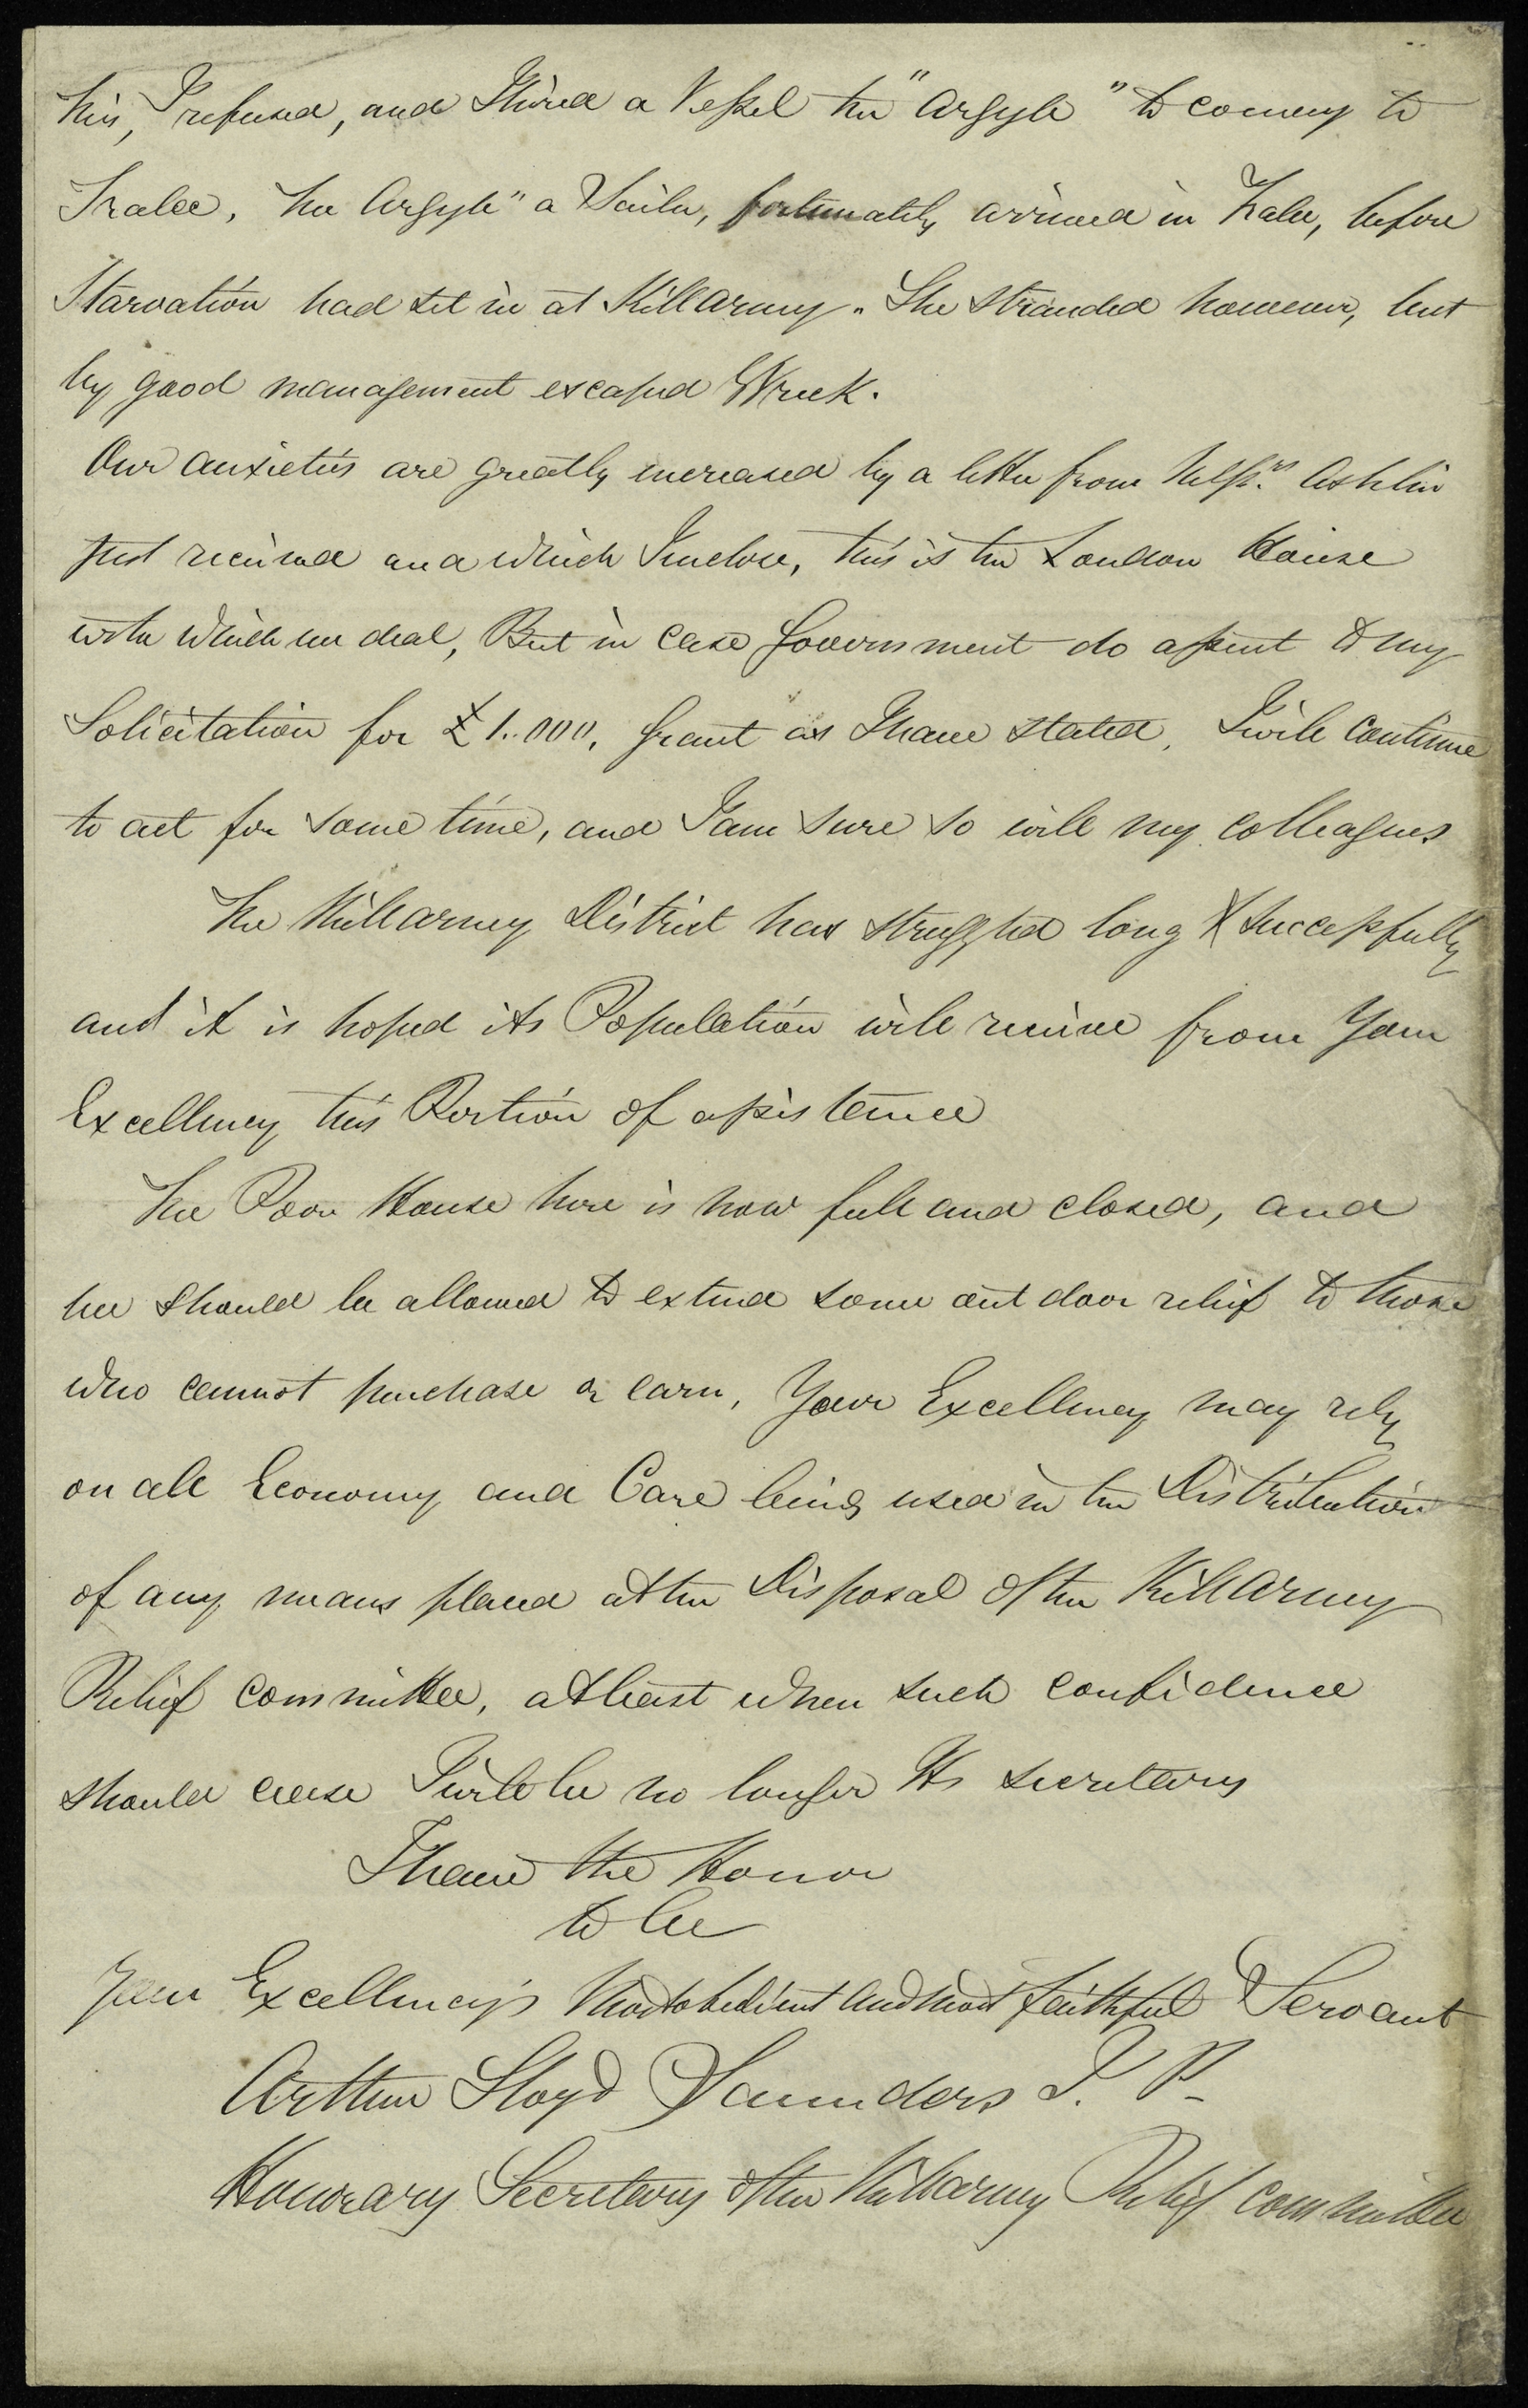 this, I refused, and Hired a Vessel the "Argyle" to convey to
Tralee, The Argyle" a Sailer, fortunately arrived in Tralee, before
Starvation had set in at Killarney. She stranded however, but
by good management escaped Wreck.
Our anxieties are greatly increased by a letter from Messrs. Ashlin
just received and which I inclose, this is the London House
with which we deal, But in case Government do assent to my
Solicitation for £1.000, Grant as I have stated, I will continue
to act for some time, and I am sure so will my colleagues
The Killarney District has struggled long & successfully
and it is hoped its Population will receive from Your
Excellency this Portion of assistance
The Poor House here is now full and closed, and
we should be allowed to extend some out door relief to those
who cannot purchase or earn, Your Excellency may rely
on all Economy and Care being used in the Distribution
of any means placed at the Disposal of the Killarney
Relief Committee, at least when such confidence
should cease I will be no longer Its secretary
I have the Honor
to be
Your Excellency's Most obedient and most faithful Servant
Arthur Lloyd Saunders J. P.
Honorary Secretary of the Killarney Relief Committee